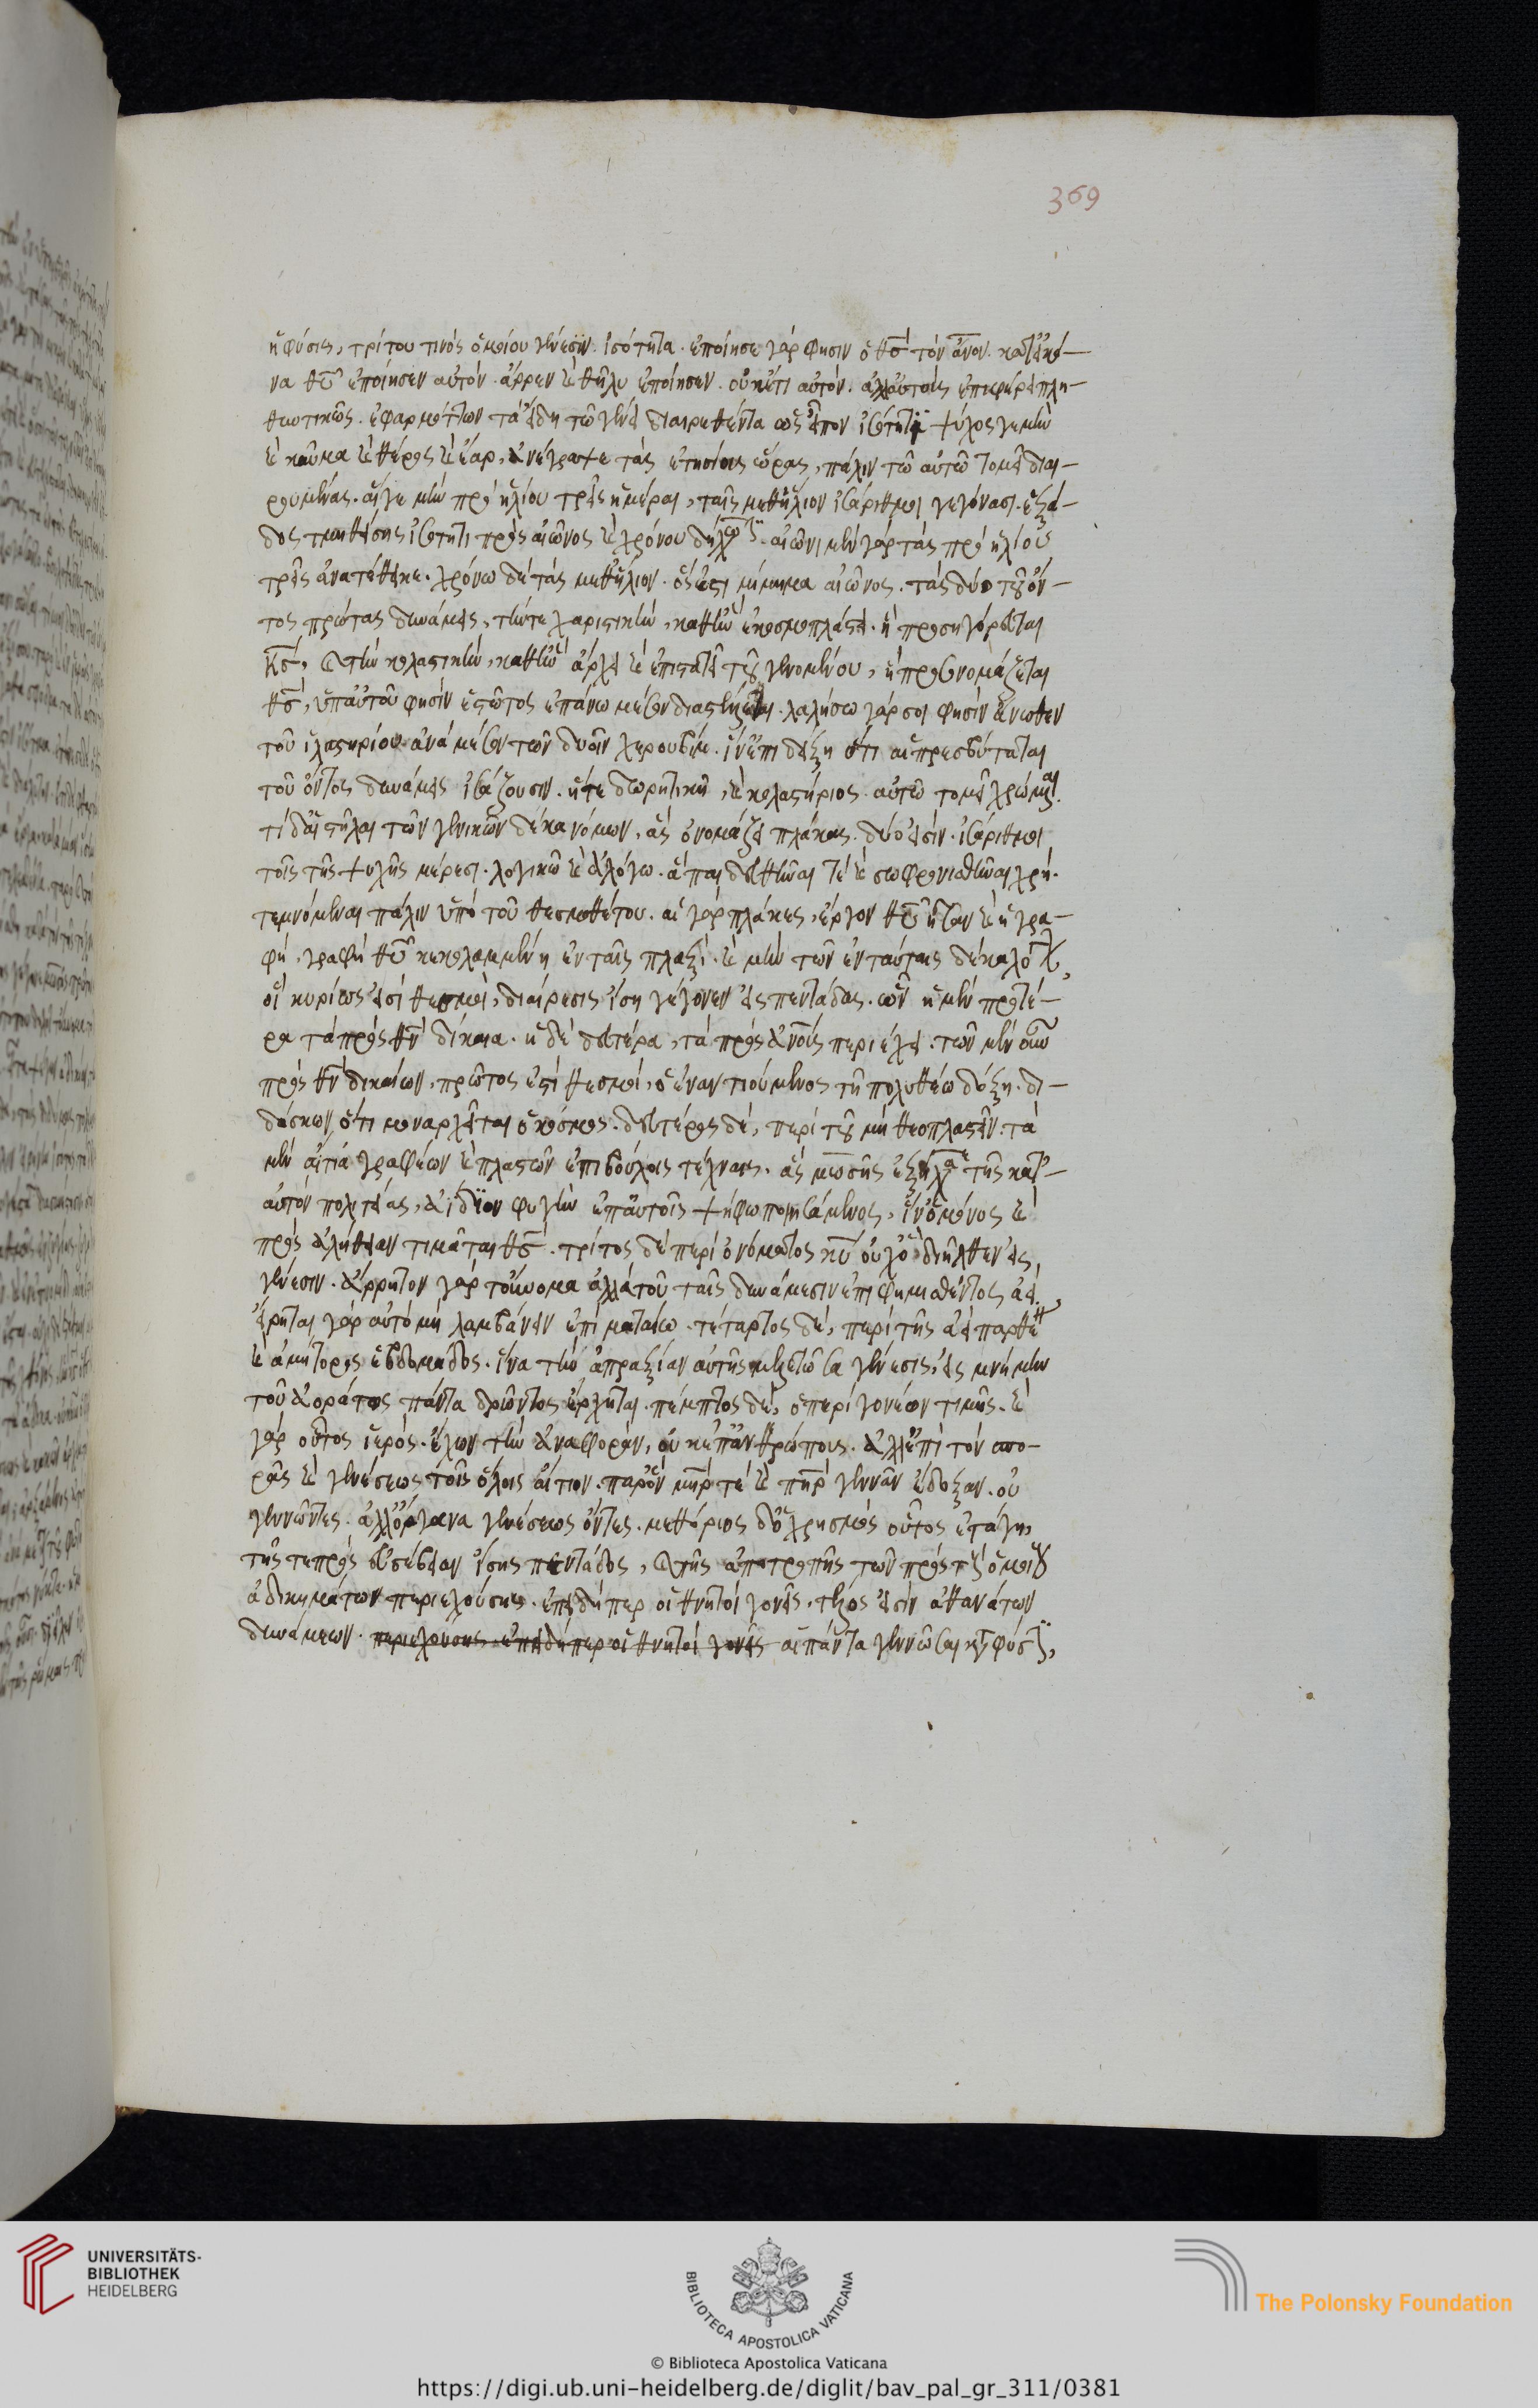 ἡ φύσις, τρίτου τινὸς ὁμοίου γένεσιν ἰσότητα. ἐποίησε γάρ φησιν ὁ θς τὸν ἄνον. κατ' εἰκό-
να θυ ἐποίησεν αὐτόν. ἄρρεν καὶ θῆλυ ἐποίησεν. οὐκέτι αὐτόν. ἀλλ' αὐτοὺς ἐπιφέρει πλη-
θυντικῶς. ἐφαρμόττων τὰ εἴδη τῶ γένει διαιρεθέντα ὡς εἶπον ἰσότητι ψύχος γε μὴν
καὶ καῦμα καὶ θέρος καὶ ἔαρ, ἀνέγραψε τὰς ἐτησίους ὥρας, πάλιν τῶ αὐτῶ τομεῖ διαι-
ρουμένας. αἵ γε μὴν πρὸ ἡλίου τρεῖς ἡμέραι, ταῖς μεθ' ἥλιον ἰσάριθμοι γεγόνασι. ἑξά-
δος τμηθείσης ἰσότητι πρὸς αἰῶνος καὶ χρόνου δήλωσιν. αἰῶνι μὲν γὰρ τὰς πρὸ ἡλίου
τρεῖς ἀνατέθεικε. χρόνω δὲ τὰς μεθ' ἥλιον. ὅς ἐστι μίμημα αἰῶνος. τὰς δύο τοῦ ὄν-
τος πρώτας δυνάμεις, τήν τε χαριστικὴν, καθ' ἣν ἐκοσμοπλάστει. ἣ προσηγόρευται
κς, καὶ τὴν κολαστικὴν, καθ' ἣν ἄρχει καὶ ἐπιστατεῖ τοῦ γενομένου, ἣ προσονομάζεται
θς, ὑπ' αὐτοῦ φησὶν ἑστῶτος ἐπάνω μέσον διαστέλλεσθαι. λαλήσω γάρ σοι φησὶν ἄνωθεν
τοῦ ἱλαστηρίου ἀνὰ μέσον τῶν δυοῖν χερουβίμ. ἵν' ἐπιδείξη ὅτι αἱ πρεσβύταται
τοῦ ὄντος δυνάμεις ἰσάζουσιν. ἥ τε δωρητικὴ, καὶ κολαστήριος. αὐτῶ τομεῖ χρώμεναι.
τί δ' αἱ στῆλαι τῶν γενικῶν δέκα νόμων, ἃς ὀνομάζει πλάκας. δύο εἰσὶν. ἰσάριθμοι
τοῖς τῆς ψυχῆς μέρεσι. λογικῶ καὶ ἀλόγω. ἃ παιδευθῆναί τε καὶ σωφρονισθῆναι χρή.
τεμνόμεναι πάλιν ὑπὸ τοῦ θεσμοθέτου. αἱ γὰρ πλάκες, ἔργον θυ ἦσαν καὶ ἡ γρα-
φὴ, γραφὴ θυ κεκολαμμένη ἐν ταῖς πλαξί. καὶ μὴν τῶν ἐν ταύταις δέκα λόγων,
οἳ κυρίως εἰσὶ θεσμοὶ, διαίρεσις ἴση γέγονεν εἰς πεντάδας. ὧν ἡ μὲν προτέ-
ρα τὰ πρὸς θν δίκαια. ἡ δὲ δευτέρα, τὰ πρὸς ἀνοὺς περιέχει. τῶν μὲν οὖν
πρὸς θν δικαίων, πρῶτος ἐστὶ θεσμὸς, ὁ ἐναντιούμενος τῆ πολυθέω δόξη. δι-
δάσκων, ὅτι μοναρχεῖται ὁ κόσμος. δεύτερος δὲ, περὶ τοῦ μὴ θεοπλαστεῖν. τὰ
μὴ αἴτια γραφέων καὶ πλαστῶν ἐπιβούλοις τέχναις. ἃς μωσῆς ἐξήλασε τῆς κατ'
αὐτὸν πολιτείας, ἀΐδιον φυγὴν ἐπ' αὐτοῖς ψηφοποιησάμενος, ἵν' ὁ μόνος καὶ
πρὸς ἀλήθειαν τιμᾶται θς. τρίτος δὲ περὶ ὀνόματος κυ οὐχ ὃ διῆλθεν εἰς,
γένεσιν. ἄρρητον γὰρ τοὔνομα ἀλλὰ τοῦ ταῖς δυνάμεσιν ἐπιφημισθέντος ἀεὶ.
εἴρηται γὰρ αὐτὸ μὴ λαμβάνειν ἐπὶ ματαίω. τέταρτος δὲ, περὶ τῆς ἀειπαρθένου
καὶ ἀμήτορος ἑβδομάδος. ἵνα τὴν ἀπραξίαν αὐτῆς μελετῶσα γένεσις, εἰς μνήμην
τοῦ ἀοράτως πάντα δρῶντος ἔρχηται. πέμπτος δὲ, ὁ περὶ γονέων τιμῆς. καὶ
γὰρ οὗτος ἱερός. ἔχων τὴν ἀναφορὰν, οὐκ ἐπ' ἀνθρώπους. ἀλλ' ἐπὶ τὸν σπο-
ρᾶς καὶ γενέσεως τοῖς ὅλοις αἴτιον. παρ' ὃν μηρ τὲ καὶ πηρ γεννᾶν ἔδοξαν. οὐ
γεννῶντες. ἀλλ' ὄργανα γενέσεως ὄντες. μεθόριος δ' ὁ χρησμὸς οὗτος ἐτάγη,
τῆς τε πρὸς εὐσέβειαν ἴσης πεντάδος, καὶ τῆς ἀποτροπὴς τῶν πρὸς τοὺς ὁμοίους
ἀδικημάτων περιεχούσης. ἐπειδήπερ οἱ θνητοὶ γονεῖς, τέλος εἰσὶν ἀθανάτων
δυνάμεων. περιεχούσης ἐπειδήπερ οἱ θνητοὶ γονεῖς αἳ πάντα γεννῶσαι κατὰ φύσιν,
369
UNIVERSITÄTS-
BIBLIOTHEK
HEIDELBERG
BIBLIOTECA APOSTOLICA VATICANA
The Polonsky Foundation
© Biblioteca Apostolica Vaticana
https://digi.ub.uni-heidelberg.de/diglit/bav_pal_gr_311/0381